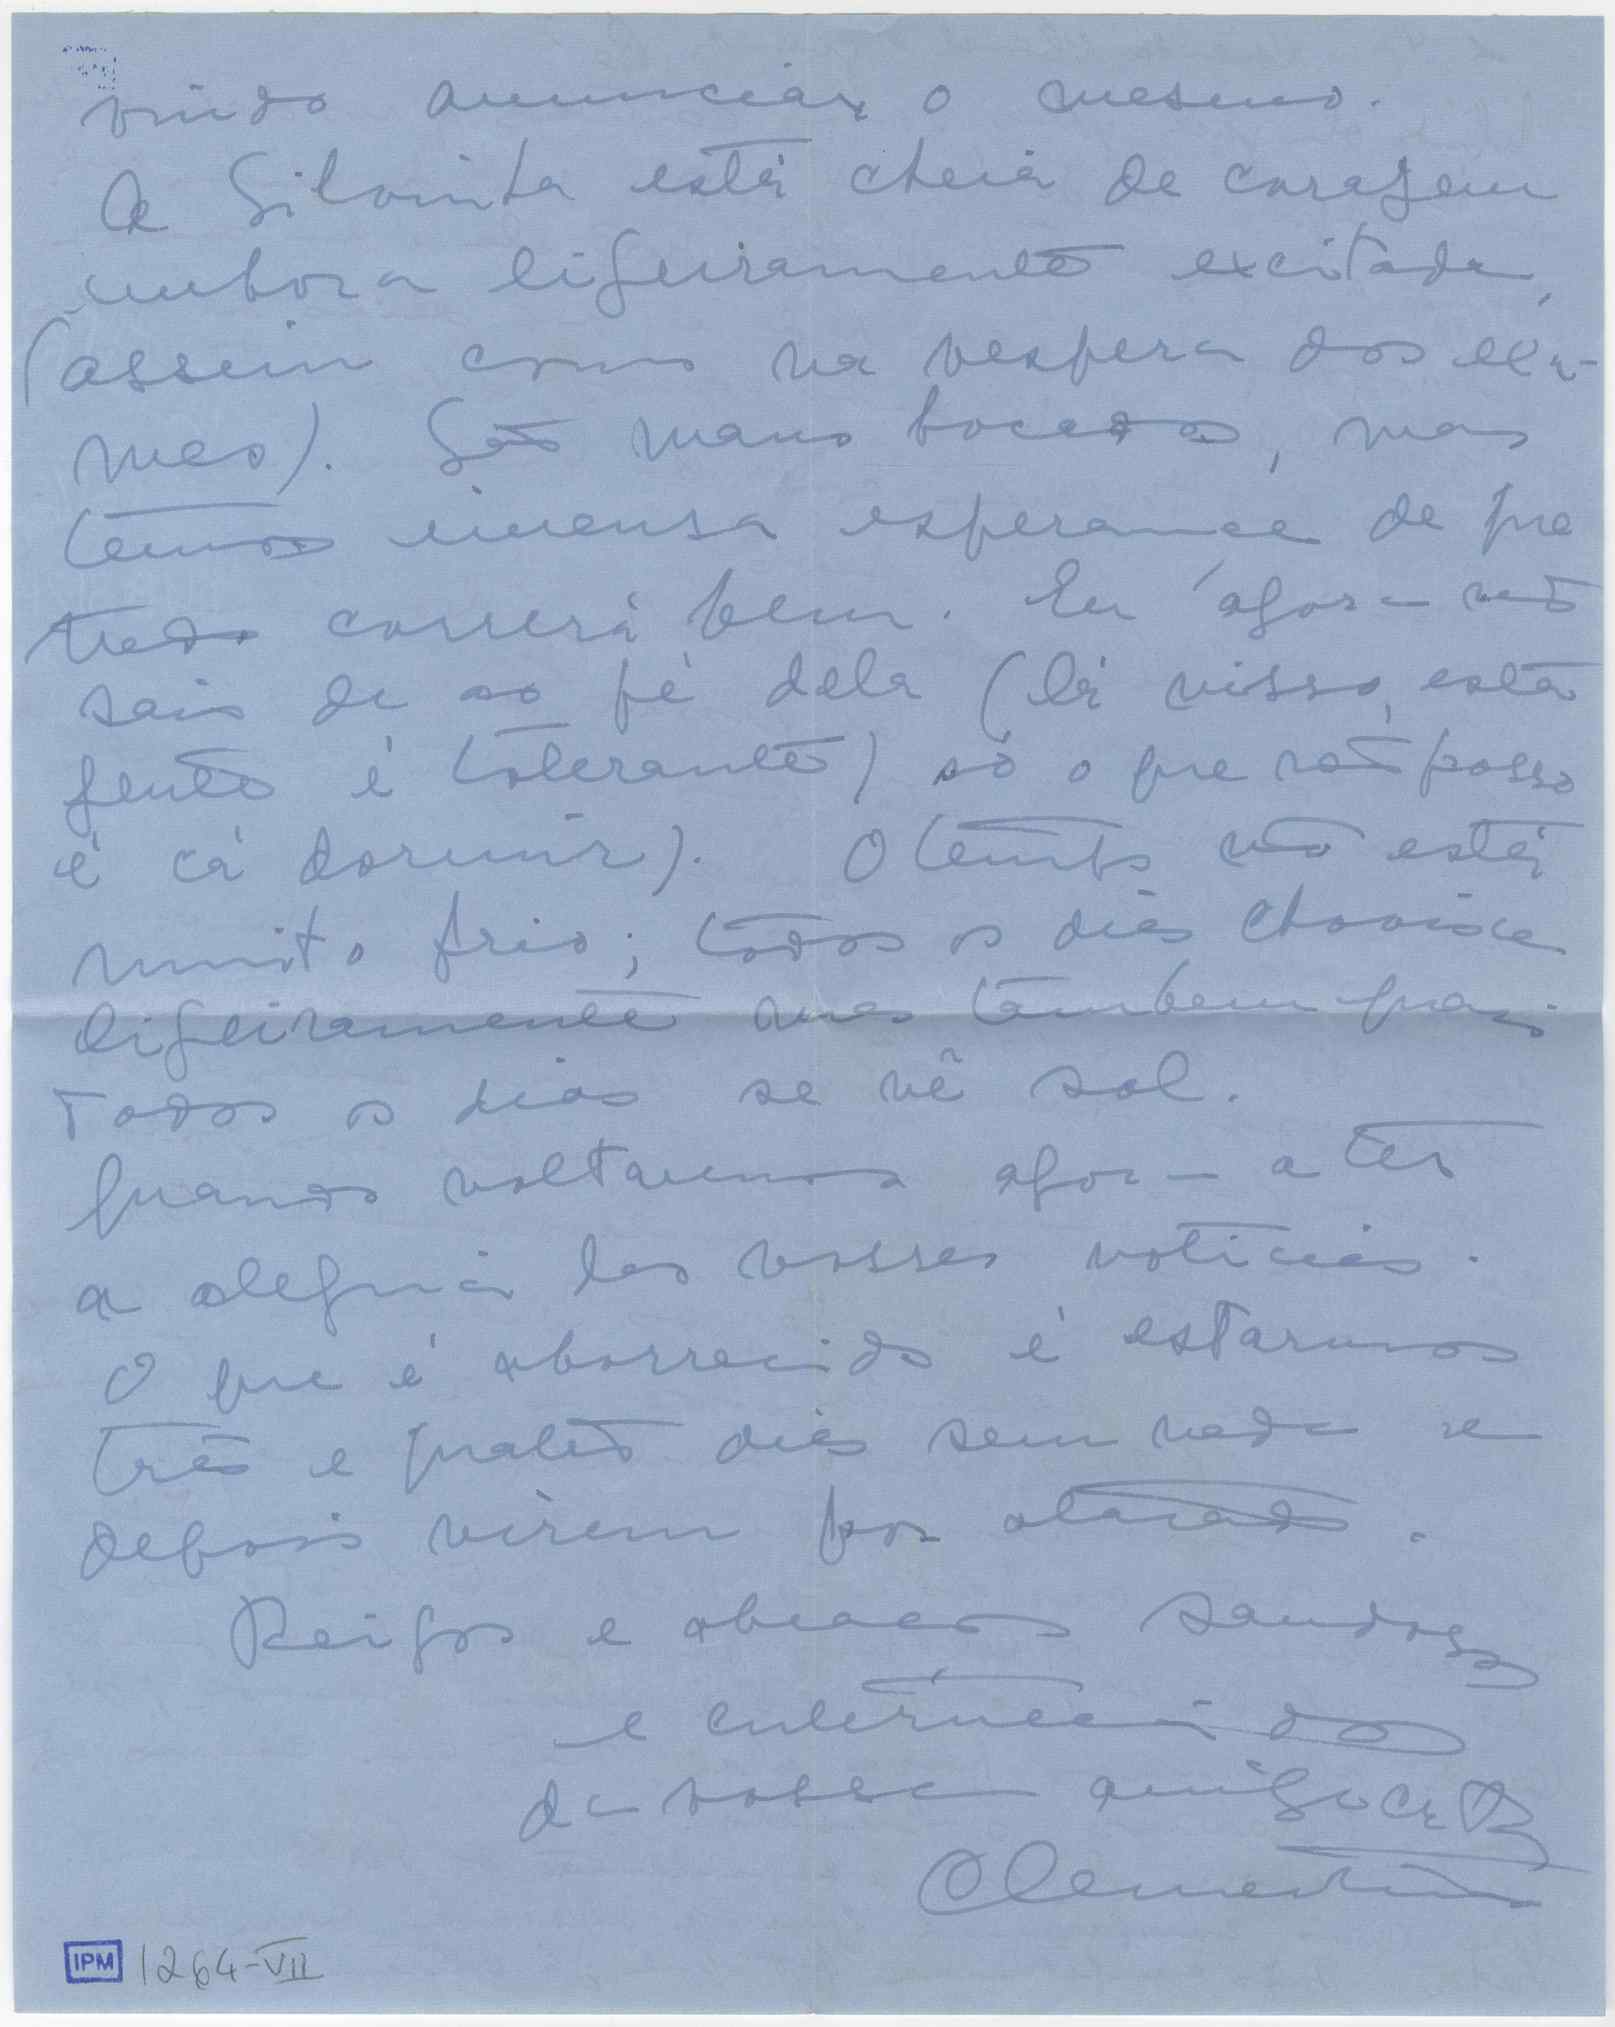 vindo anunciar o mesmo.
A Silvinha está cheia de coragem
embora ligeiramente excitada,
(assim como na vespera dos exa-
mes). São maus bocados, mas
temos imensa esperança de que
tudo correrá bem. Eu agora não
saio de ao pé dela (lá nisso, esta
gente é tolerante) só o que não posso
é cá dormir). O tempo não está
muito frio; todos os dias chovisca
ligeiramente mas tambem quasi
todos os dias se vê sol.
Quando voltaremos agora a ter
a alegria das vossas noticias.
O que é aborrecido é estarmos
três e quatro dias sem nada e
depois virem por atacado.
Beijos e abraços saudosos
e enternecidos
da vossa amiga certa
Clementina
IPM 1264-VII